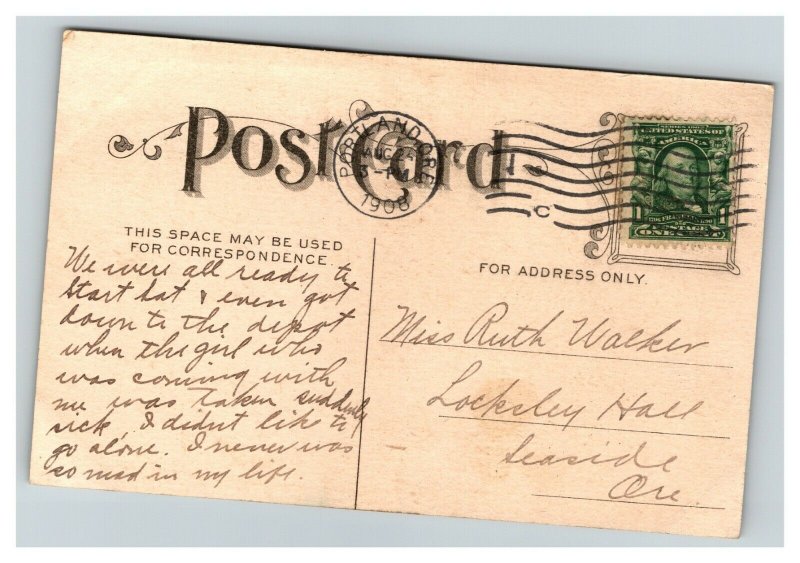 Post Card
PORTLAND, ORE.
AUG 24
3 - PM
1908
C
SERIES 1902
UNITED STATES OF
AMERICA
1 POSTAGE 1
ONE CENT
THIS SPACE MAY BE USED
FOR CORRESPONDENCE.
FOR ADDRESS ONLY.
We were all ready to
start Sat & even got
down to the depot
when the girl who
was coming with
me was taken suddenly
sick. I didn't like to
go alone. I never was
so mad in my life.
Miss Ruth Walker
Locksley Hall
Seaside
Ore.